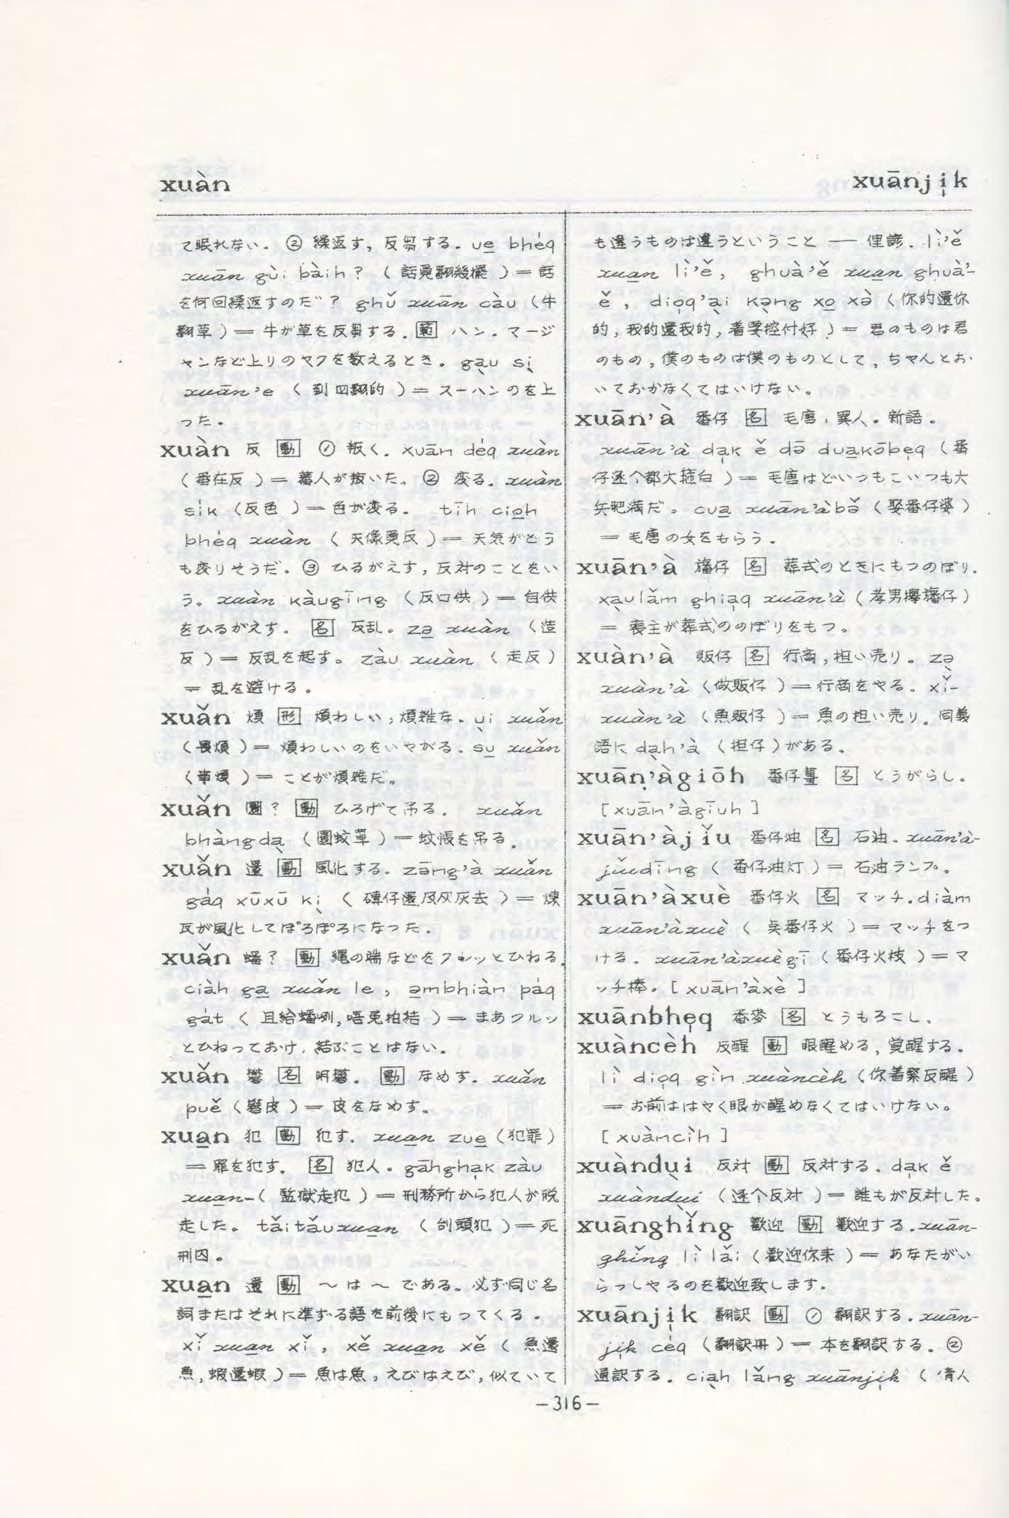 xuàn
xuānji̍k
て眠れない。② 繰返す,反芻する。ue̠ bhéq
xuān gùi bàih?(話覓翻幾擺)=話
を何回繰返すのだ?ghǔ xuān càu(牛
翻草)=牛が草を反芻する。範 ハン。マージ
ャンなど上りのヤクを数えるとき。gạu sị
xuān'e(到四翻的)=スーハンのを上
った。
xuàn 反 動 ① 叛く。xuān déq xuàn
(番在反)=蕃人が叛いた。② 変る。xuàn
sik(反色)=色が変る。 tīh cioh
bhéq xuàn(天像覓反)=天気がどう
も変りそうだ。③ ひるがえす,反対のことをい
う。xuàn kàugīng(反口供)=自供
をひるがえす。名 反乱。zə xuàn(造
反)=反乱を起す。zàu xuàn(走反)
=乱を避ける。
xuǎn 煩 形 煩わしい,煩雑な。ụi xuǎn
(畏煩)=煩わしいのをいやがる。su̠ xuǎn
(事煩)=ことが煩雑だ。
xuǎn 圜?動 ひろげて吊る。 xuǎn
bhàngdạ(圜蚊罩)=蚊帳を吊る。
xuǎn 還 動 風化する。zāng'à xuǎn
gáq xūxū kị(磚仔還及灰灰去)=煉
瓦が風化してぼろぼろになった。
xuǎn 蟠?動 縄の端などをクルッとひねる。
ciàh ga̠ xuǎn le, əmbhiàn páq
gát(且給蟠咧,唔免拍結)=まあクルッ
とひねっておけ,結ぶことはない。
xuǎn 礬 名 明礬。動 なめす。xuǎn
puě(礬皮)=皮をなめす。
xua̠n 犯 動 犯す。xua̠n zue̠(犯罪)
=罪を犯す。名 犯人。gāhghak zàu
xua̠n(監獄走犯)=刑務所から犯人が脱
走した。tǎitǎuxua̠n(刣頭犯)=死
刑囚。
xua̠n 還 動 〜は〜である。必ず同じ名
詞またはそれに準ずる語を前後にもってくる。
xǐ xua̠n xǐ, xě xua̠n xě(魚還
魚,蝦還蝦)=魚は魚,えびはえび,似ていて
も違うものは違うということ — 俚諺。lì'ě
xua̠n lì'ě, ghuà'ě xua̠n ghuà'-
ě, dioq'ại kạng xo̠ xə̀(你的還你
的,我的還我的,着愛控付好)=君のものは君
のもの,僕のものは僕のものとして,ちゃんとお
いておかなくてはいけない。
xuān'à 番仔 名 毛唐,異人。新語。
xuān'à dạk ě dō dua̠kōbeq(番
仔逐个都大箍白)=毛唐はどいつもこいつも大
兵肥満だ。cua̠ xuān'àbǒ(娶番仔婆)
=毛唐の女をもらう。
xuān'à 旛仔 名 葬式のときにもつのぼり。
xạulǎm ghiaq xuān'à(孝男攑旛仔)
=喪主が葬式ののぼりをもつ。
xuàn'à 販仔 名 行商,担い売り。zə
xuàn'à(做販仔)=行商をやる。xǐ-
xuàn'à(魚販仔)=魚の担い売り。同義
語に dạh'à(担仔)がある。
xuān'àgiōh 番仔薑 名 とうがらし。
[xuān'àgiuh]
xuān'àjǐu 番仔油 名 石油。xuān'à-
jǐudīng(番仔油灯)=石油ランプ。
xuān'àxuè 番仔火 名 マッチ。diàm
xuān'àxuè(奌番仔火)=マッチをつ
ける。xuān'àxuègī(番仔火枝)=マ
ッチ棒。[xuān'àxè]
xuānbheq 番麥 名 とうもろこし。
xuàncèh 反醒 動 眼醒める,覚醒する。
lì dioq gìn xuàncèh(你着緊反醒)
=お前ははやく眼が醒めなくてはいけない。
[xuàncìh]
xuàndụi 反対 動 反対する。dạk ě
xuàndụi(逐个反対)=誰もが反対した。
xuānghǐng 歡迎 動 歡迎する。xuān-
ghǐng lì lǎi(歡迎你来)=あなたがい
らっしゃるのを歡迎致します。
xuānji̍k 翻訳 動 ① 翻訳する。xuān-
ji̍k céq(翻訳冊)=本を翻訳する。②
通訳する。ciạh lǎng xuānji̍k(倩人
—316—